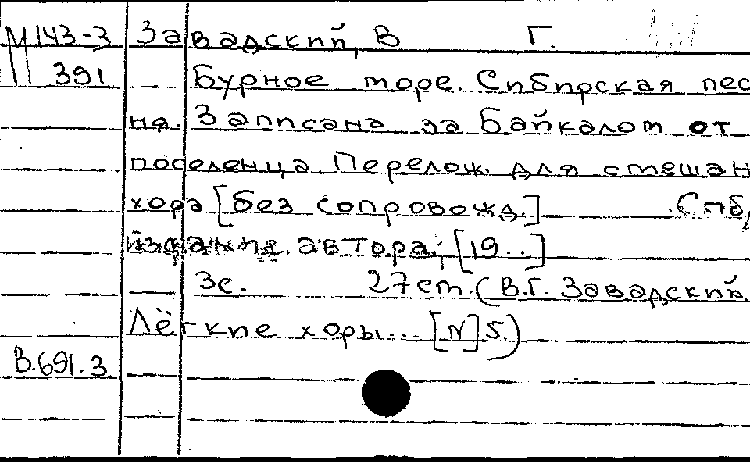 М 143-3 Завадский, В Г.
391 Бурное море. Сибирская пес
ня. Записана за Байкалом от
поселенца Перелож. для смешан
хора [без сопровожд.] Спб,
издание автора, [19..]
3с. 27ст. (В.Г. Завадский
Лёгкие хоры... [N]5.)
В.691.3